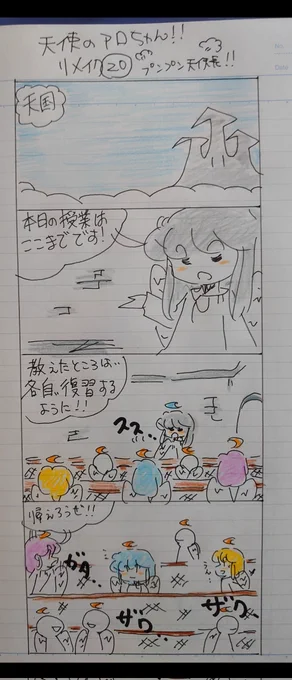 天使のアロちゃん!!
リメイク⑳ プンプン天使長!!
天国
本日の授業は
ここまでです!
教えたところは…
各自、復習する
ように!!
スス…
帰えろうぜ!!
ガタ…
ザワ
ザワ